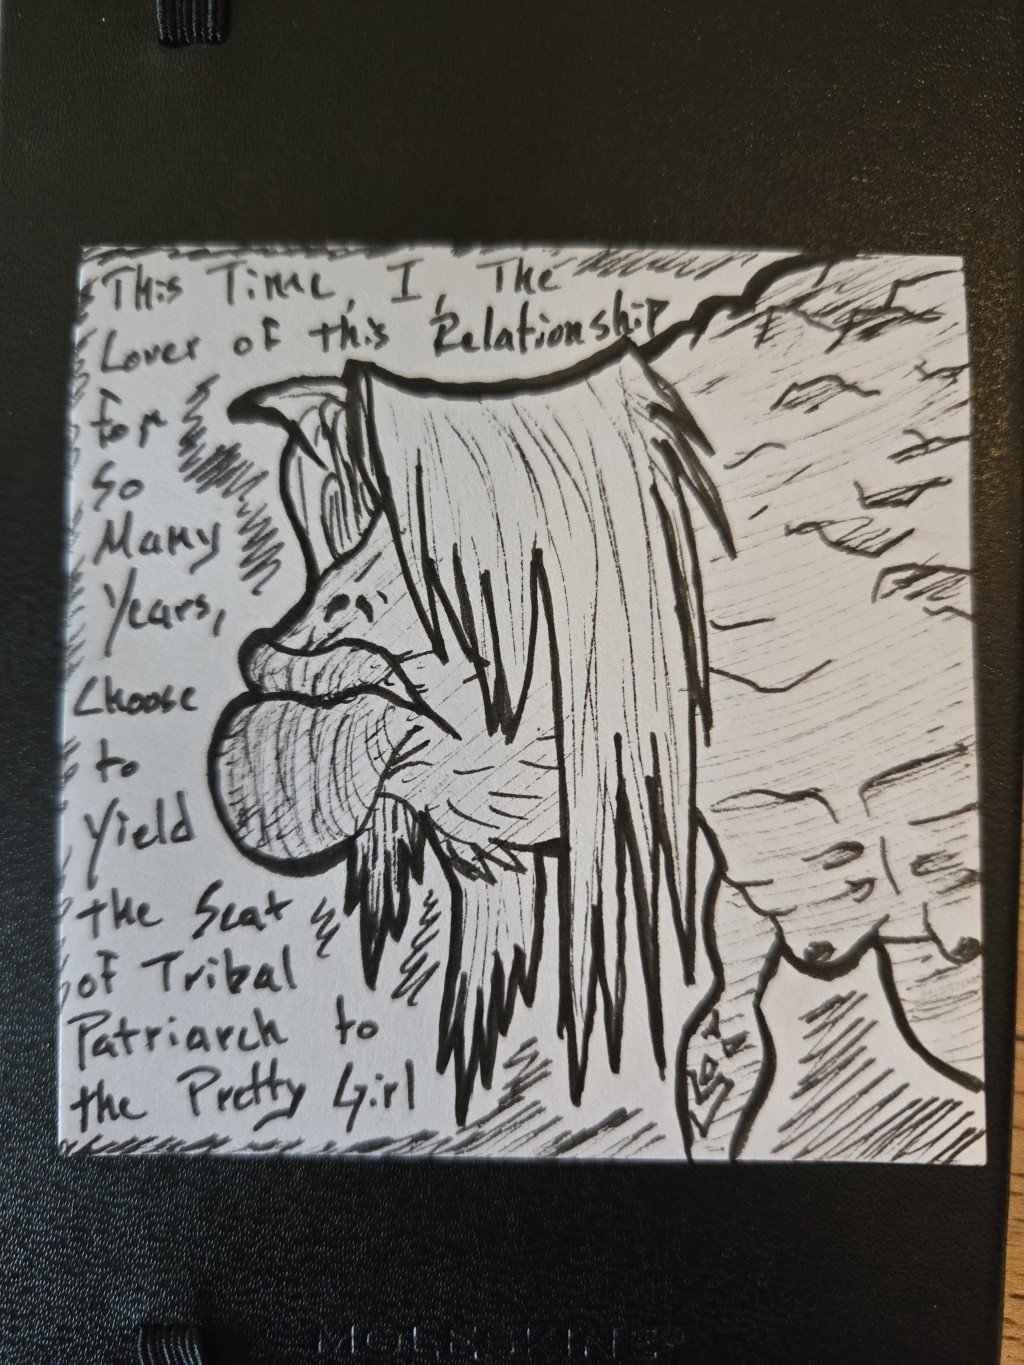 This Time, I, The
Lover of this Relationship
for
So
Many
Years,
Choose
to
Yield
the Seat
of Tribal
Patriarch to
the Pretty Girl
MOLESKINE®